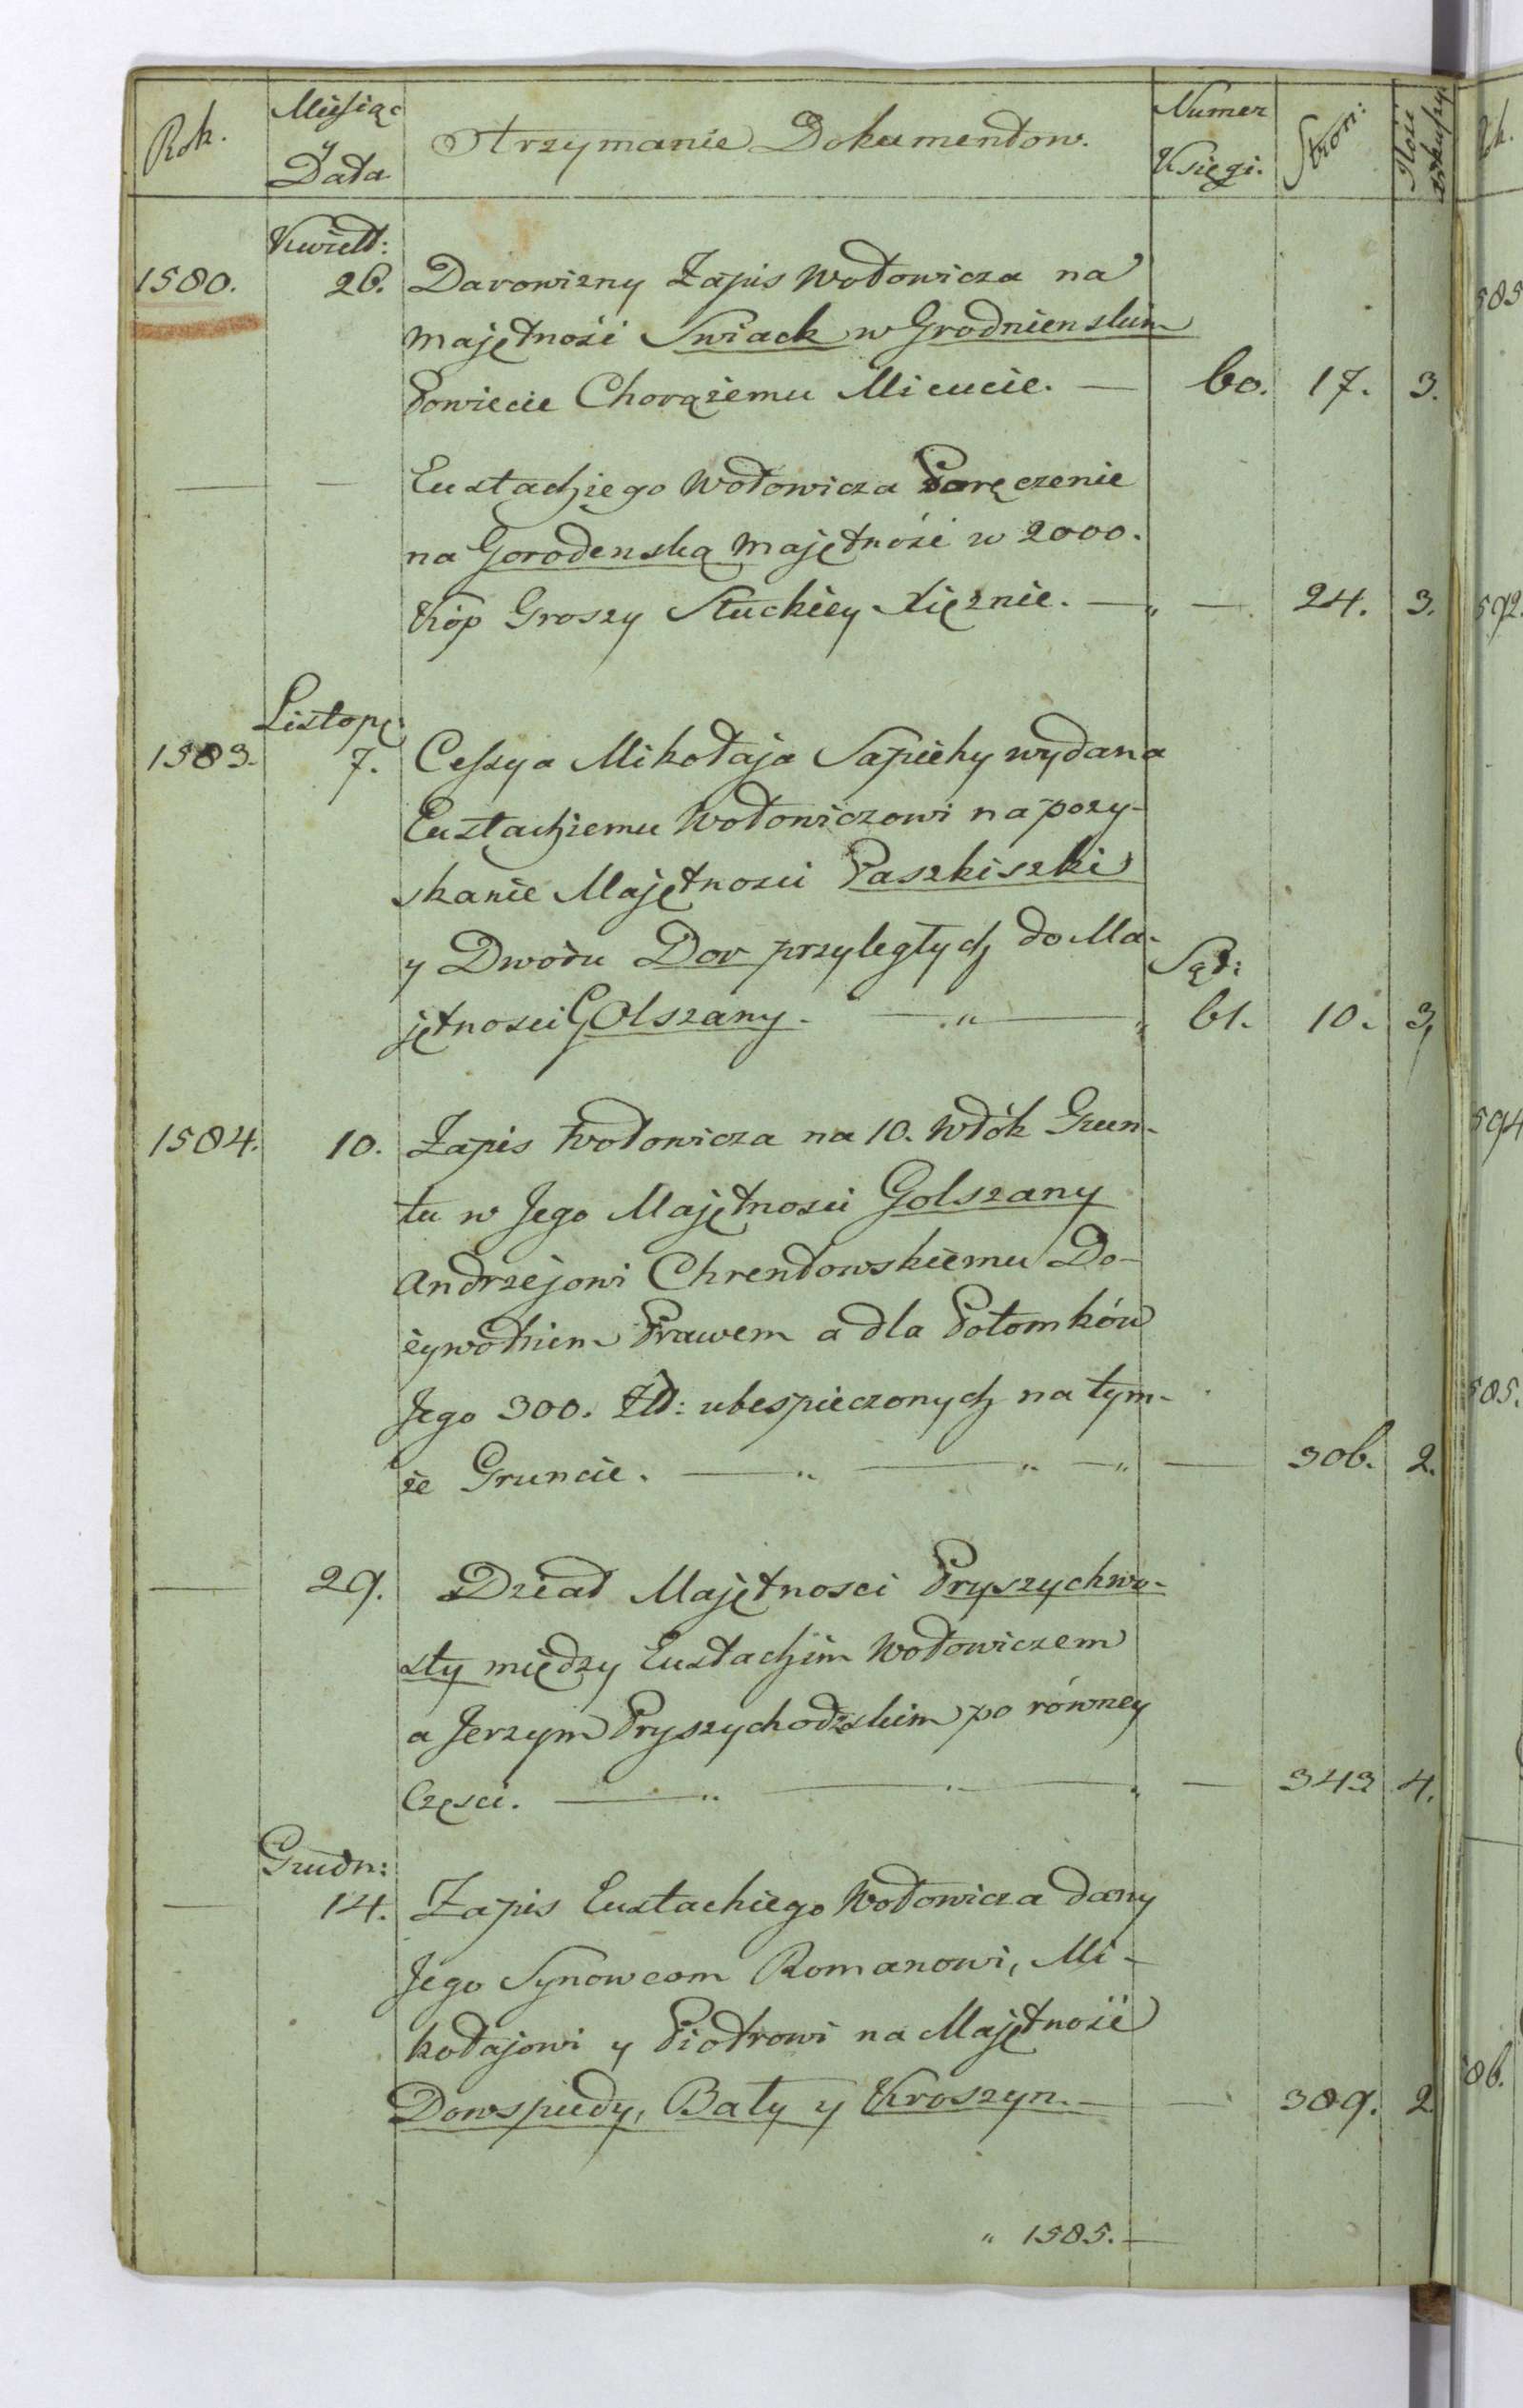 Rok. Miesiąc y Data Otrzymanie Dokumentow. Numer Księgi. Stron: Ilość Arkuszy
Kwiet:
1580. 26. Darowizny Zapis Wołowicza na
majętność Swiack w Grodnienskim
Powiecie Chorążemu Micucie. — 60. 17. 3.
— — Eustachjego Wołowicza Poręczenie
na Gorodenską majętność w 2000.
Kóp Groszy Słuckiey Xiężnie. — „ — 24. 3.
Listop:
1583. 7. Cessya Mikołaja Sapiehy wydana
Eustachjemu Wołowiczowi na pozy-
skanie Majętnosci Paszkiszki
y Dworu Dor przyległych do Ma-
Sąd:
jętnosci Golszany. — „ — „ 61. 10. 3.
1584. 10. Zapis Wołowicza na 10. Włók Grun-
tu w Jego Majętnosci Golszany
Andrzejowi Chrentowskiemu Do-
żywotniem Prawem a dla Potomków
Jego 300. Zł: ubespieczonych na tym-
że Gruncie. — „ — „ — „ — 306. 2.
— 29. Dział Majętnosci Pryszychwo-
sty między Eustachim Wołowiczem
a Jerzym Pryszychodzskim po równey
Częsci. — „ — „ — „ — 343 4.
Grudn:
— 14. Zapis Eustachiego Wołowicza dany
Jego Synowcom Romanowi, Mi-
kołajowi y Piotrowi na Majętność
Dowspudy, Baty y Kroszyn. — — 389. 2
„ 1585. —